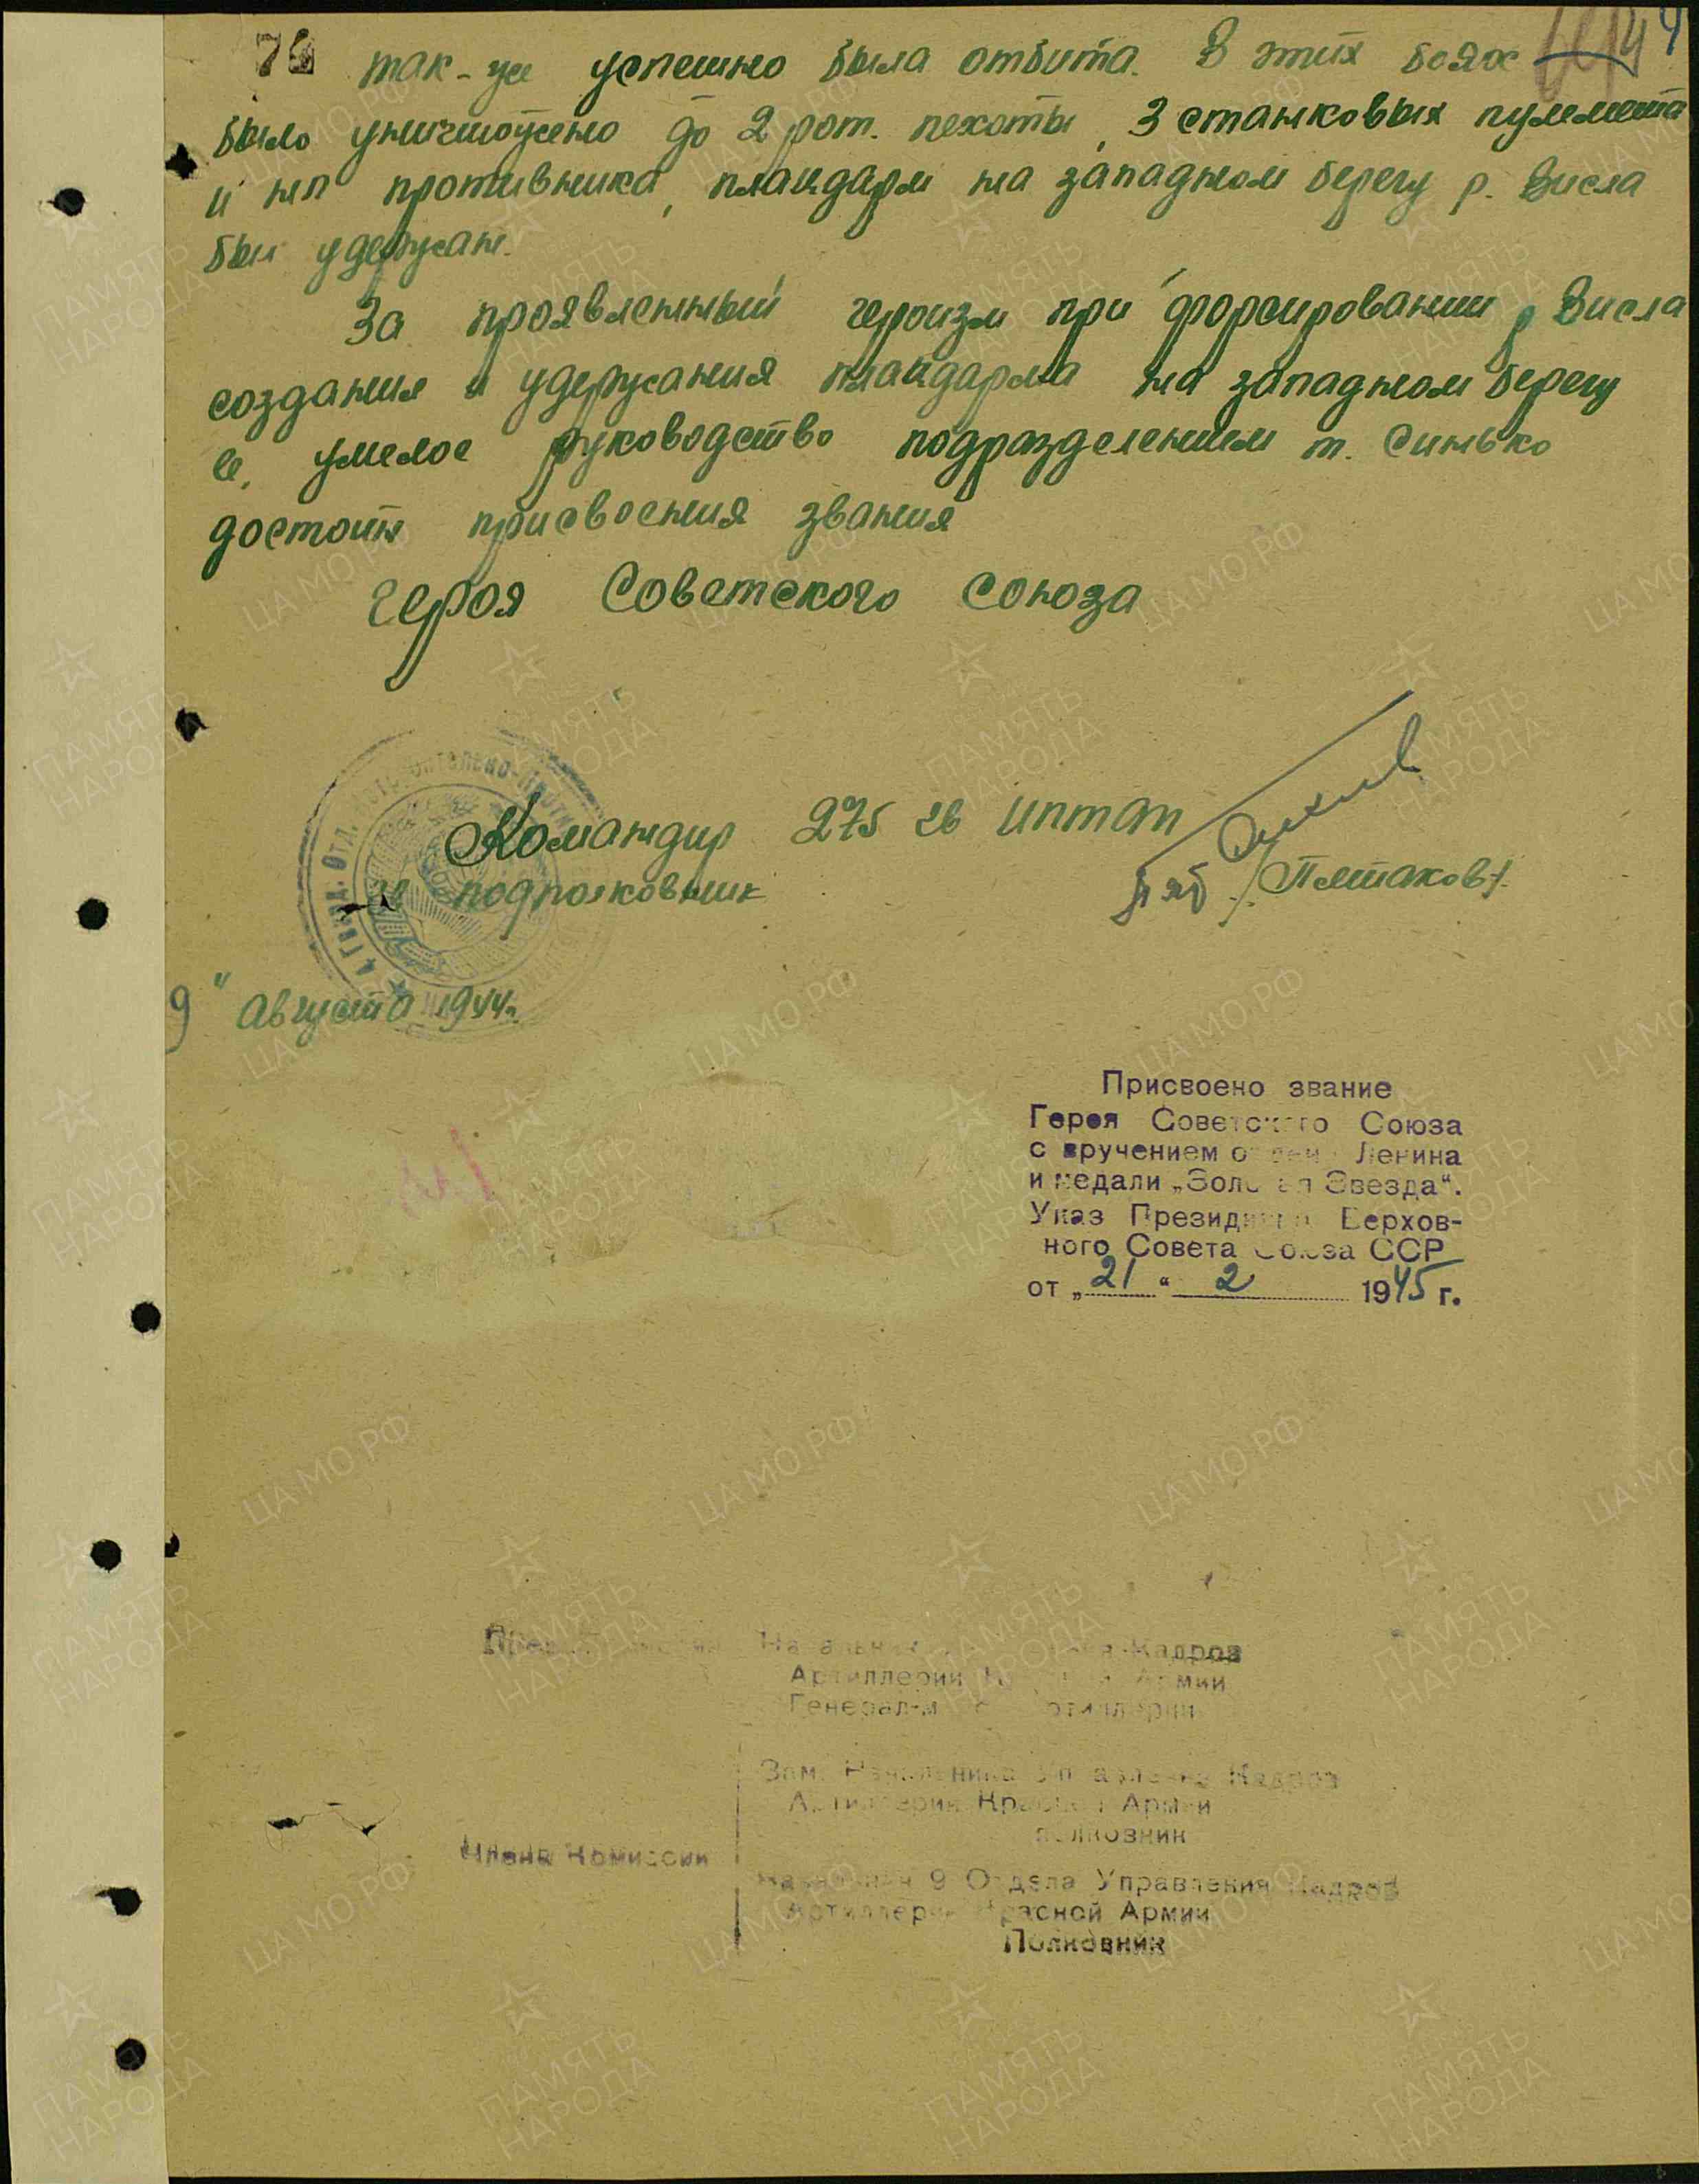 так-же успешно была отбита. В этих боях
было уничтожено до 2 рот. пехоты, 3 станковых пулемета
и нп противника, плацдарм на западном берегу р. Висла
был удержан.
За проявленный героизм при форсировании р Висла
создания и удержания плацдарма на западном берегу
ее, умелое руководство подразделением т. Синько
достоин присвоения звания
Героя Советского Союза
Командир 275 гв иптап
гв подполковник /Пятаков/.
9" Августа 1944г.
Присвоено звание
Героя Советского Союза
с вручением ордена Ленина
и медали „Золотая Звезда“.
Указ Президиума Верхов-
ного Совета Союза ССР
от „21“ 2 1945 г.
Начальник Кадров
Артиллерии Красной Армии
Генерал-м артиллерии
Зам. Начальника Управления Кадров
Артиллерии Красной Армии
полковник
Члены Комиссии
Начальник 9 Отдела Управления Кадров
Артиллерии Красной Армии
Полковник
ПАМЯТЬ НАРОДА
ЦА МО РФ